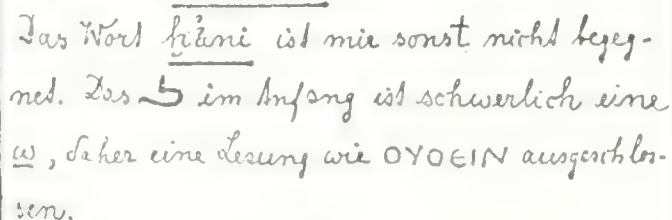 Das Wort ḫꜣni ist mir sonst nicht begeg-
net. Das im Anfang ist schwerlich eine
w, daher eine Lesung wie ΟΥΟΕΙΝ ausgeschlos-
sen.